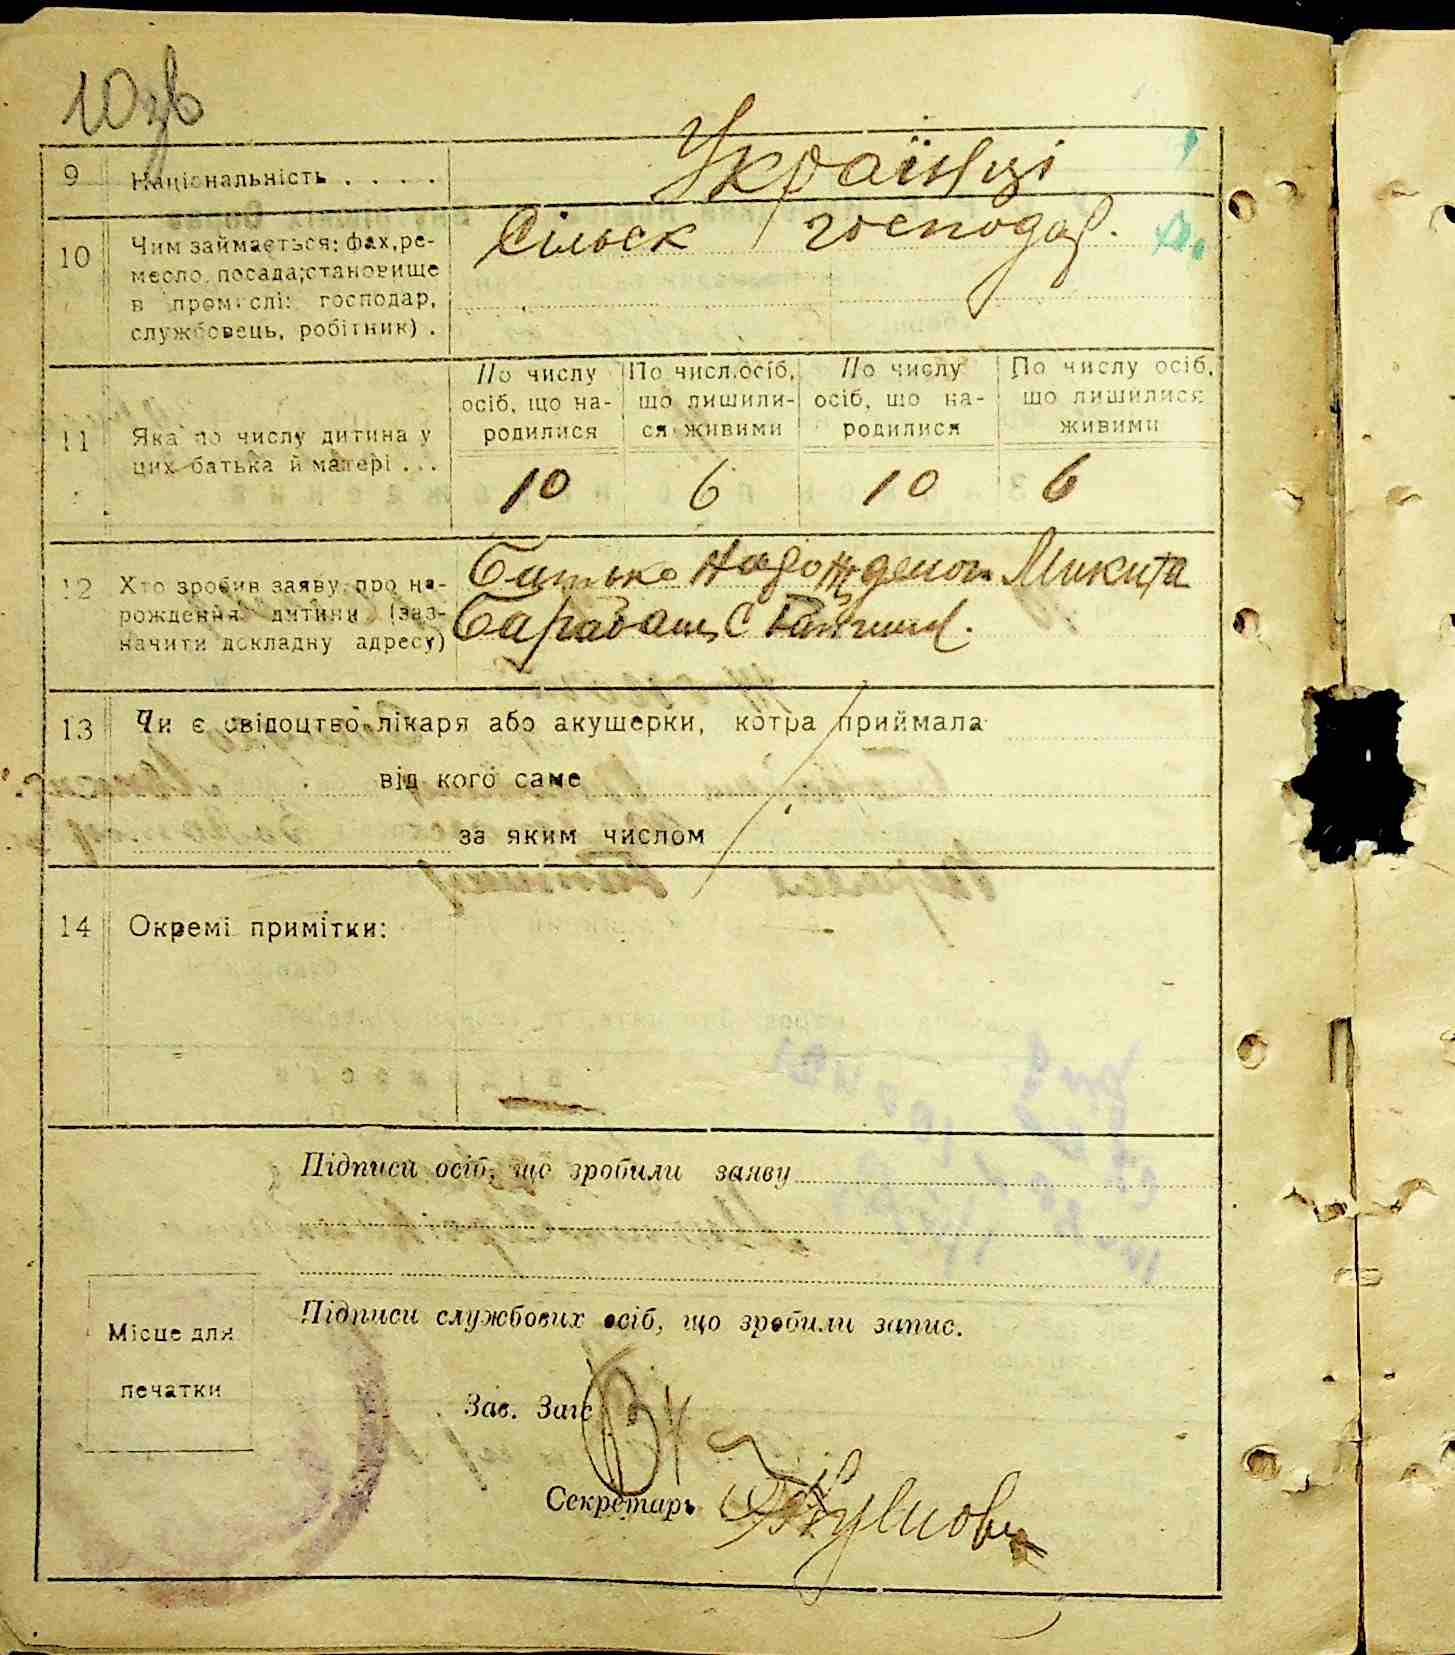 10 зв
9 Національність . . . . Українці
10 Чим займається: фах, ре-
месло, посада; становище
в промислі: господар,
службовець, робітник) .
Сільск господар.
По числу осіб, що на-родилися
По числ. осіб, що лишили-ся живими
По числу осіб, що на-родилися
По числу осіб, що лишилися живими
11 Яка по числу дитина у
цих батька й матері . . .
10 6 10 6
12 Хто зробив заяву про на-
рождення дитини (заз-
начити докладну адресу)
Батько Микита
Барабаш с
13 Чи є свідоцтво лікаря або акушерки, котра приймала
від кого саме
за яким числом
14 Окремі примітки:
Підписи осіб, що зробили заяву
Підписи службових осіб, що зробили запис.
Місце для
печатки
Зав. Загс
Секретарь